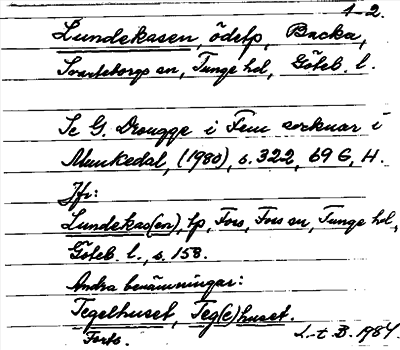 1-2.
Lundekasen, ödelp, Backa,
Svarteborgs sn, Tunge hd, Göteb. l.
Se G. Drougge i Fem socknar i
Munkedal, (1980), s. 322, 69 G, H.
Jfr:
Lundekas(en), lp, Foss, Foss sn, Tunge hd,
Göteb. l., s. 158.
Andra benämningar:
Tegelhuset, Teg(e)lhuset.
Forts.
L-t B. 1984